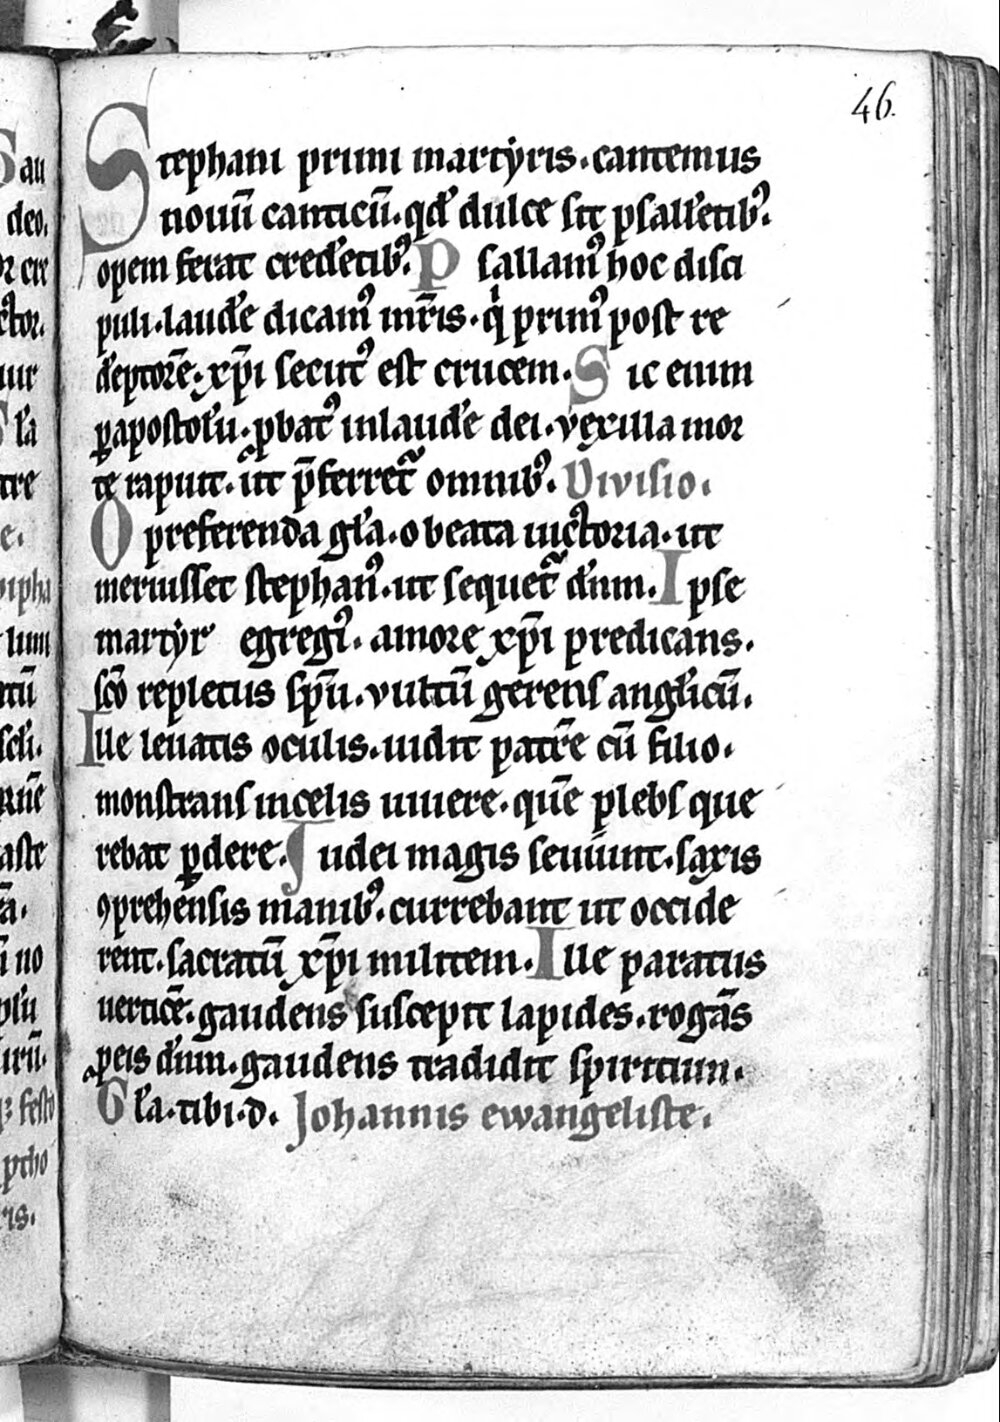 46.
Stephani primi martẏris. cantemus
nouū canticū. qđ dulce sit psallētib᷒.
opem ferat credētib᷒. Psallam᷒ hoc disci
puli. laudē dicam᷒ mr̄is. qͥ prim᷒ post re
deptorē. xp̄i secut᷒ est crucem. Sic enim
ꝑ apostolū. ꝓbat᷒ inlaude dei. vexilla mor
te rapuit. ut p̄ferret᷑ omnib᷒. Divisio.
O preferenda gl̄a. o beata uictoria. ut
meruisset stephan᷒. ut sequet᷑ dn̄m. Ipse
martẏr egregi᷒. amore xp̄i predicans.
sc̄o repletus sp̄u. vultū gerens angl̄icū.
Ille leuatis oculis. uidit patrē cū filio.
monstrans incelis uiuere. quē plebs que
rebat ꝑdere. Iudei magis seuiunt. saxis
ꝯprehensis manib᷒. currebant ut occide
rent. sacratū xp̄i militem. Ille paratus
uerticē. gaudens suscepit lapides. rogās
ꝓ eis dn̄m. gaudens tradidit spiritum.
Gl̄a. tibi. d. Johannis ewangeliste.